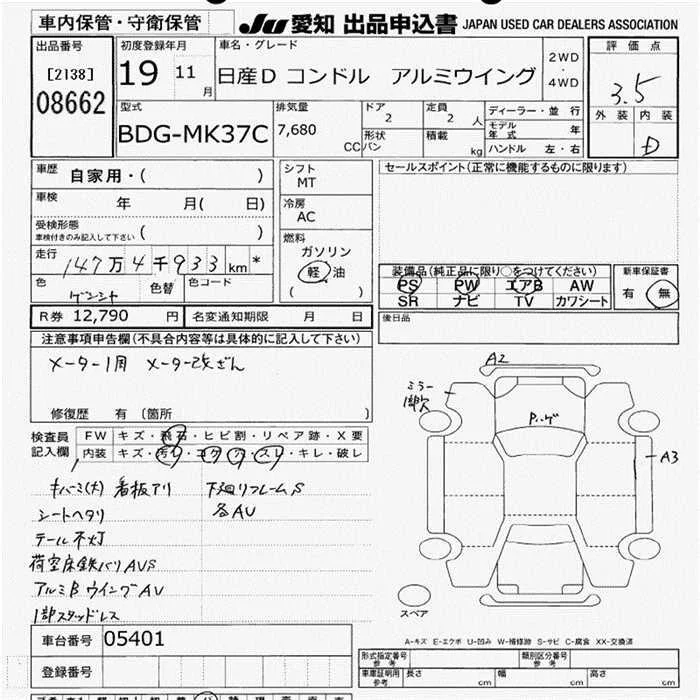 車内保管・守衛保管
JU 愛知 出品申込書 JAPAN USED CAR DEALERS ASSOCIATION
出品番号
[2138]
08662
初度登録年月
19 11 月
車名・グレード
日産D コンドル アルミウイング
2WD
・
4WD
評価点
3.5
外装 内装
D
型式
BDG-MK37C
排気量
7,680 CC
ドア
2
定員
2 人
形状
バン
積載
kg
ディーラー・並行
モデル年式 年
ハンドル 左・右
車歴 自家用・( )
車検 年 月( 日)
受検形態
車検付きのみ記入して下さい ( )
走行
147万4千933km *
色 色替 色コード
R券 12,790 円
名変通知期限 月 日
シフト
MT
冷房
AC
燃料
ガソリン
軽油
( )
セールスポイント(正常に機能するものに限ります)
装備品(純正品に限り○をつけてください)
PS PW エアB AW
SR ナビ TV カワシート
新車保証書
有 無
後日品
注意事項申告欄(不具合内容等は具体的に記入して下さい)
メーター1用 メーター改ざん
修復歴 有 (箇所 )
検査員記入欄
FW キズ・飛石・ヒビ割・リペア跡・X要
内装 キズ・汚れ・コゲ・穴・スレ・キレ・破レ
キバミ(大) 看板アリ 下廻リフレームS
シートヘタリ 各AU
テール不灯
荷室床鉄バリAVS
アルミBウイングAU
1部スタッドレス
車台番号 05401
登録番号
A2
ミラー
1部欠
P.ゲ
A3
スペア
A-キズ E-エクボ U-凹み W-補修跡 S-サビ C-腐食 XX-交換済
形式指定番号
参考
類別区分番号
参考
車庫証明用
参考
長さ cm 幅 cm 高さ cm